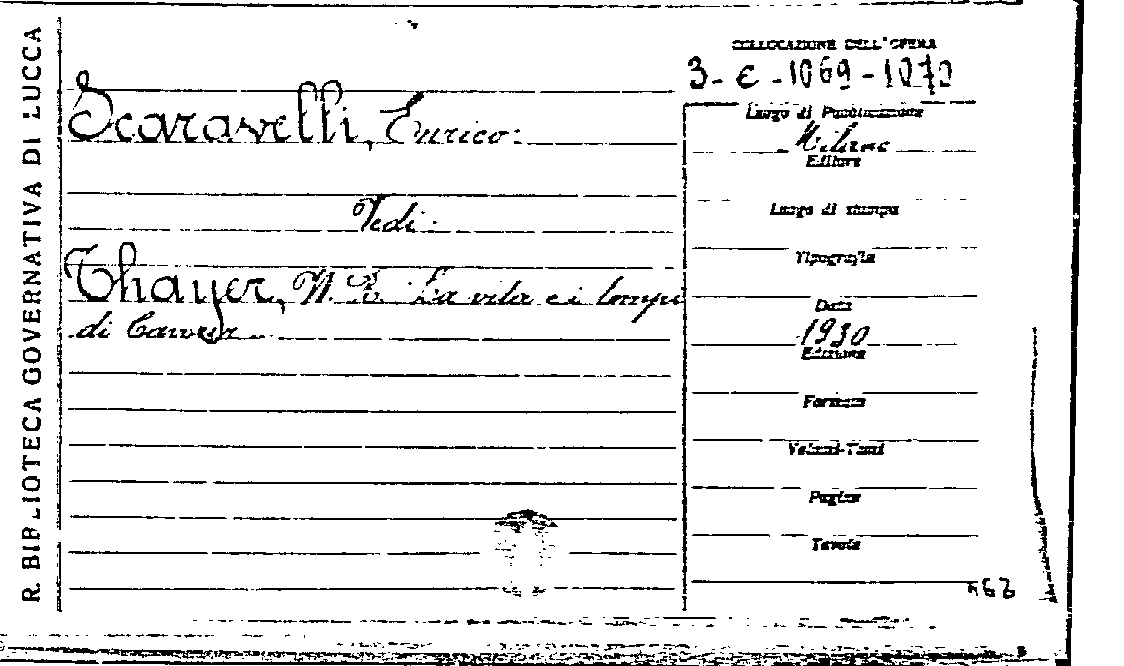 R. BIBLIOTECA GOVERNATIVA DI LUCCA
COLLOCAZIONE DELL'OPERA
3-E-1069-1070
Scaravelli, Enrico:
Vedi:
Thayer, W. R. La vita e i tempi
di Cavour
Luogo di Pubblicazione
Milano
Editore
Luogo di stampa
Tipografia
Data
1930
Edizione
Formato
Volumi-Tomi
Pagine
Tavole